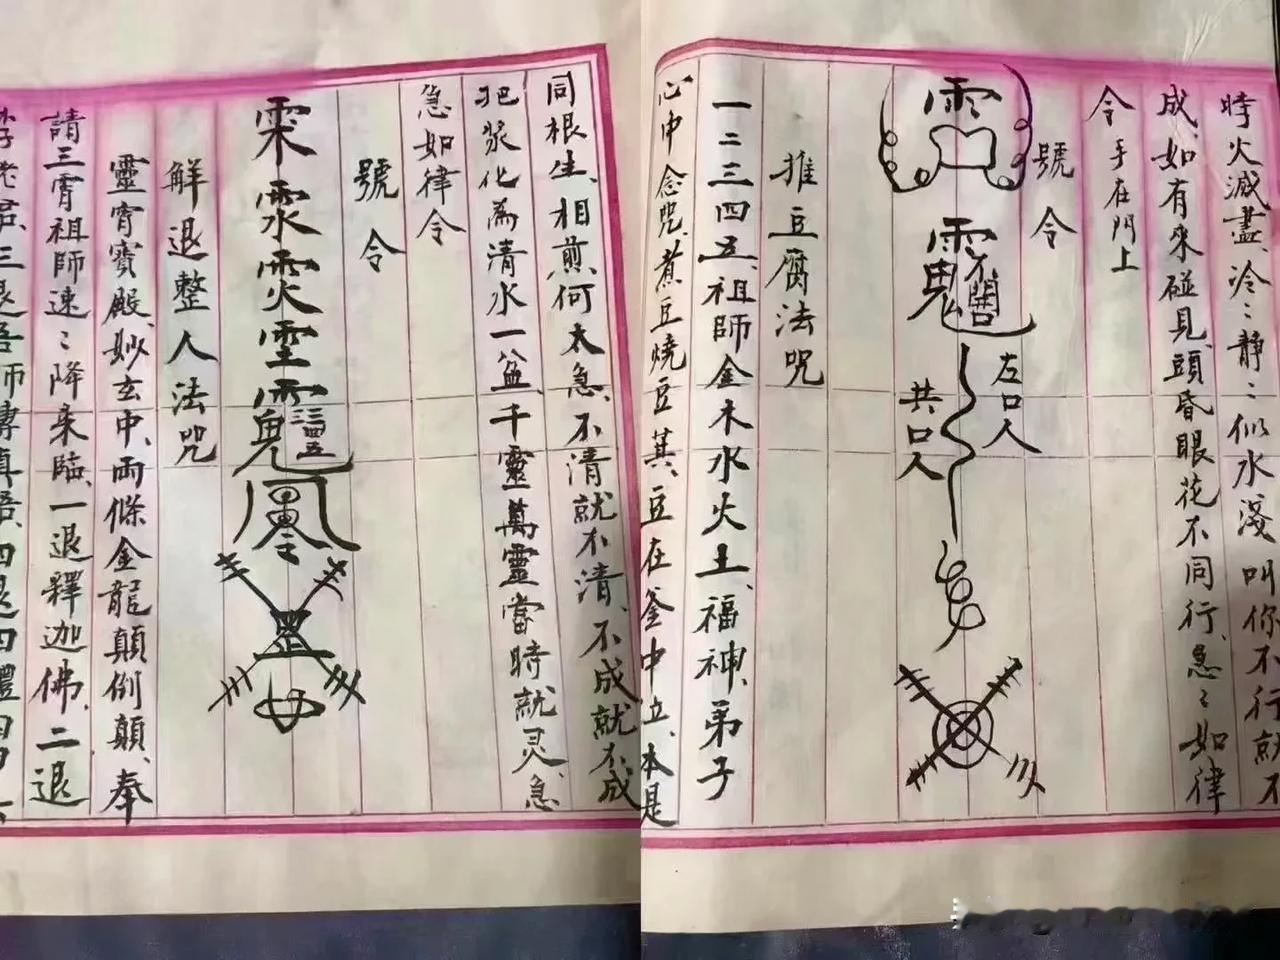 時火滅盡、冷〻靜〻似水淺叫你不行就不
成、如有來碰見、頭昏眼花不同行、急〻如律
令 手在門上
號令
左口人
共口人
推豆腐法咒
一二三四五、祖師金木水火土、福神、弟子
心中念咒、煮豆燒豆萁、豆在釜中立、本是
同根生、相煎何太急、不清就不清、不成就不成
犯漿化為清水一盆千靈萬靈當時就灵、急
急如律令
號令
解退整人法咒
靈霄寶殿、妙玄中、兩條金龍顛倒顛、奉
請三霄祖師速〻降来臨、一退釋迦佛、二退
李老君、三退吾師傳真語、四退四